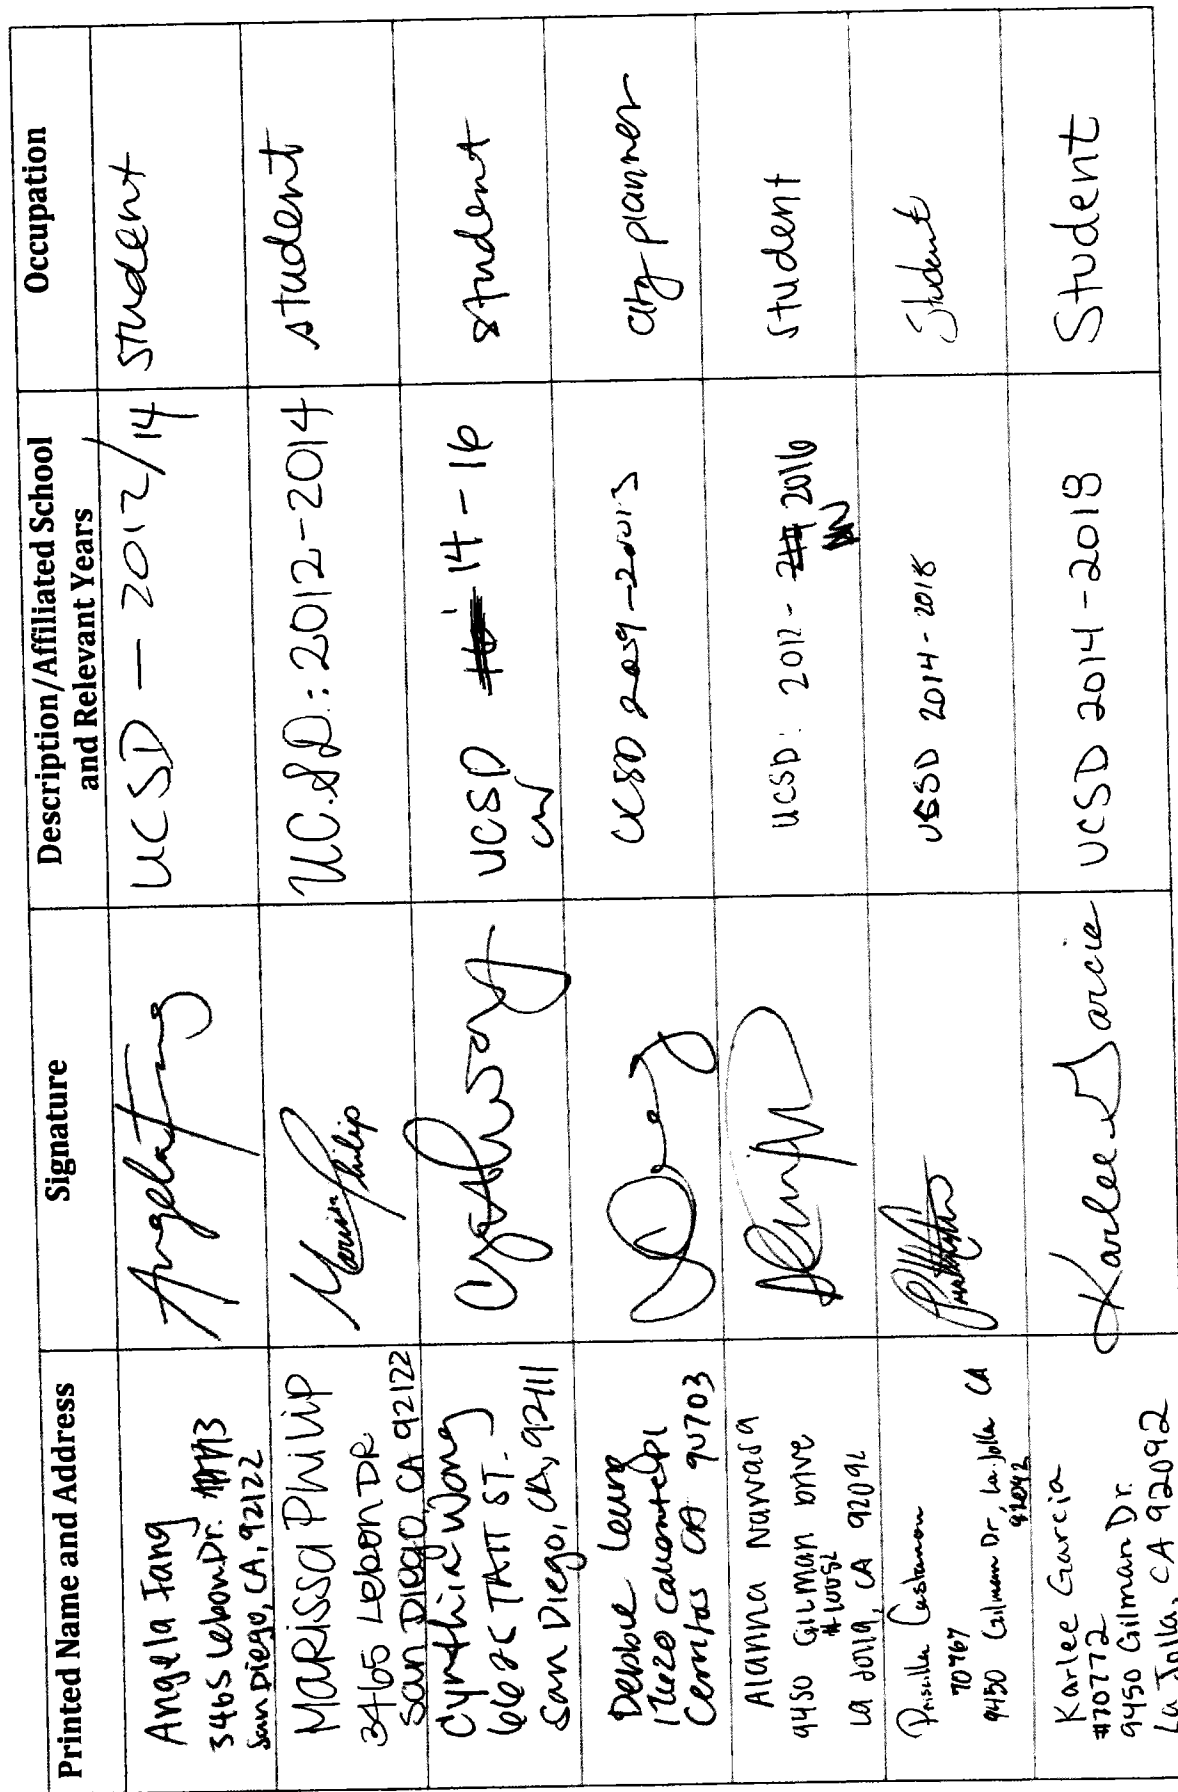 Printed Name and Address
Signature
Description/Affiliated School
and Relevant Years
Occupation
Angela Fang
3465 Lebon Dr.
San Diego, CA, 92122
Angela Fang
UCSD — 2012/14
student
MARISSA PHILIP
3465 Lebon DR
San DIEGO, CA 92122
Marissa Philip
U.C.S.D.: 2012-2014
student
Cynthia Wong
662C TAIT ST.
San Diego, CA, 92111
Cynthia Wong
UCSD 14-16
CW
student
Debbie Leung
Cerritos CA 90703
UCSD 2009-2013
city planner
Alanna Nawasa
9450 Gilman Drive
La Jolla, CA 92092
UCSD: 2012 - 2016
student
Priscilla Castanon
70767
9450 Gilman Dr, La Jolla CA
92092
UCSD 2014-2018
Student
Karlee Garcia
#70772
9450 Gilman Dr.
La Jolla, CA 92092
Karlee Garcia
UCSD 2014-2018
Student